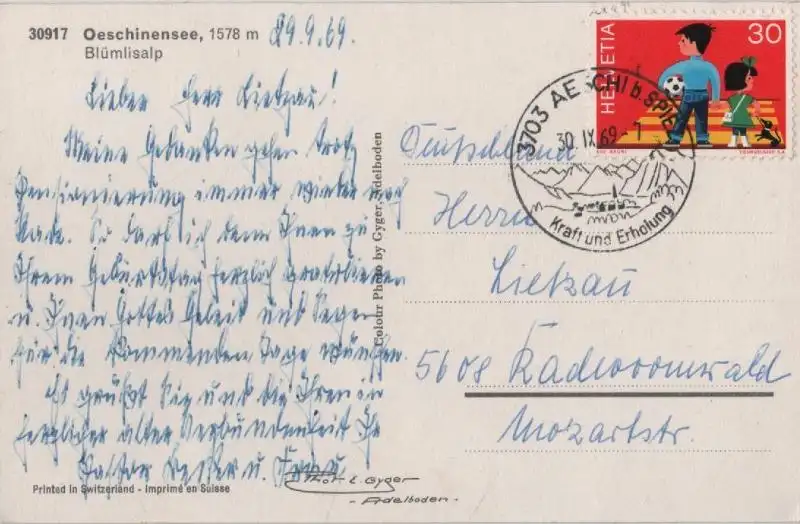 30917 Oeschinensee, 1578 m 29.9.69.
Blümlisalp
Lieber Herr Lietzau!
Meine Gedanken gehen trotz
Pensionierung immer wieder nach
Rade. So darf ich denn Ihnen zu
Ihrem Geburtstag herzlich gratulieren
u. Ihnen Gottes Geleit und Segen
für die kommenden Tage wünschen.
Es grüßt Sie und die Ihren in
herzlicher alter Verbundenheit Ihr
Pastor Becker u. Frau
Printed in Switzerland - Imprimé en Suisse
Colour Photo by Gyger, Adelboden
Phot. E. Gyger
- Adelboden -
HELVETIA 30
COURVOISIER S.A.
3703 AESCHI b. SPIEZ
30.IX.69-7
Kraft und Erholung
Deutschland
Herrn
Lietzau
5608 Radevormwald
Mozartstr.